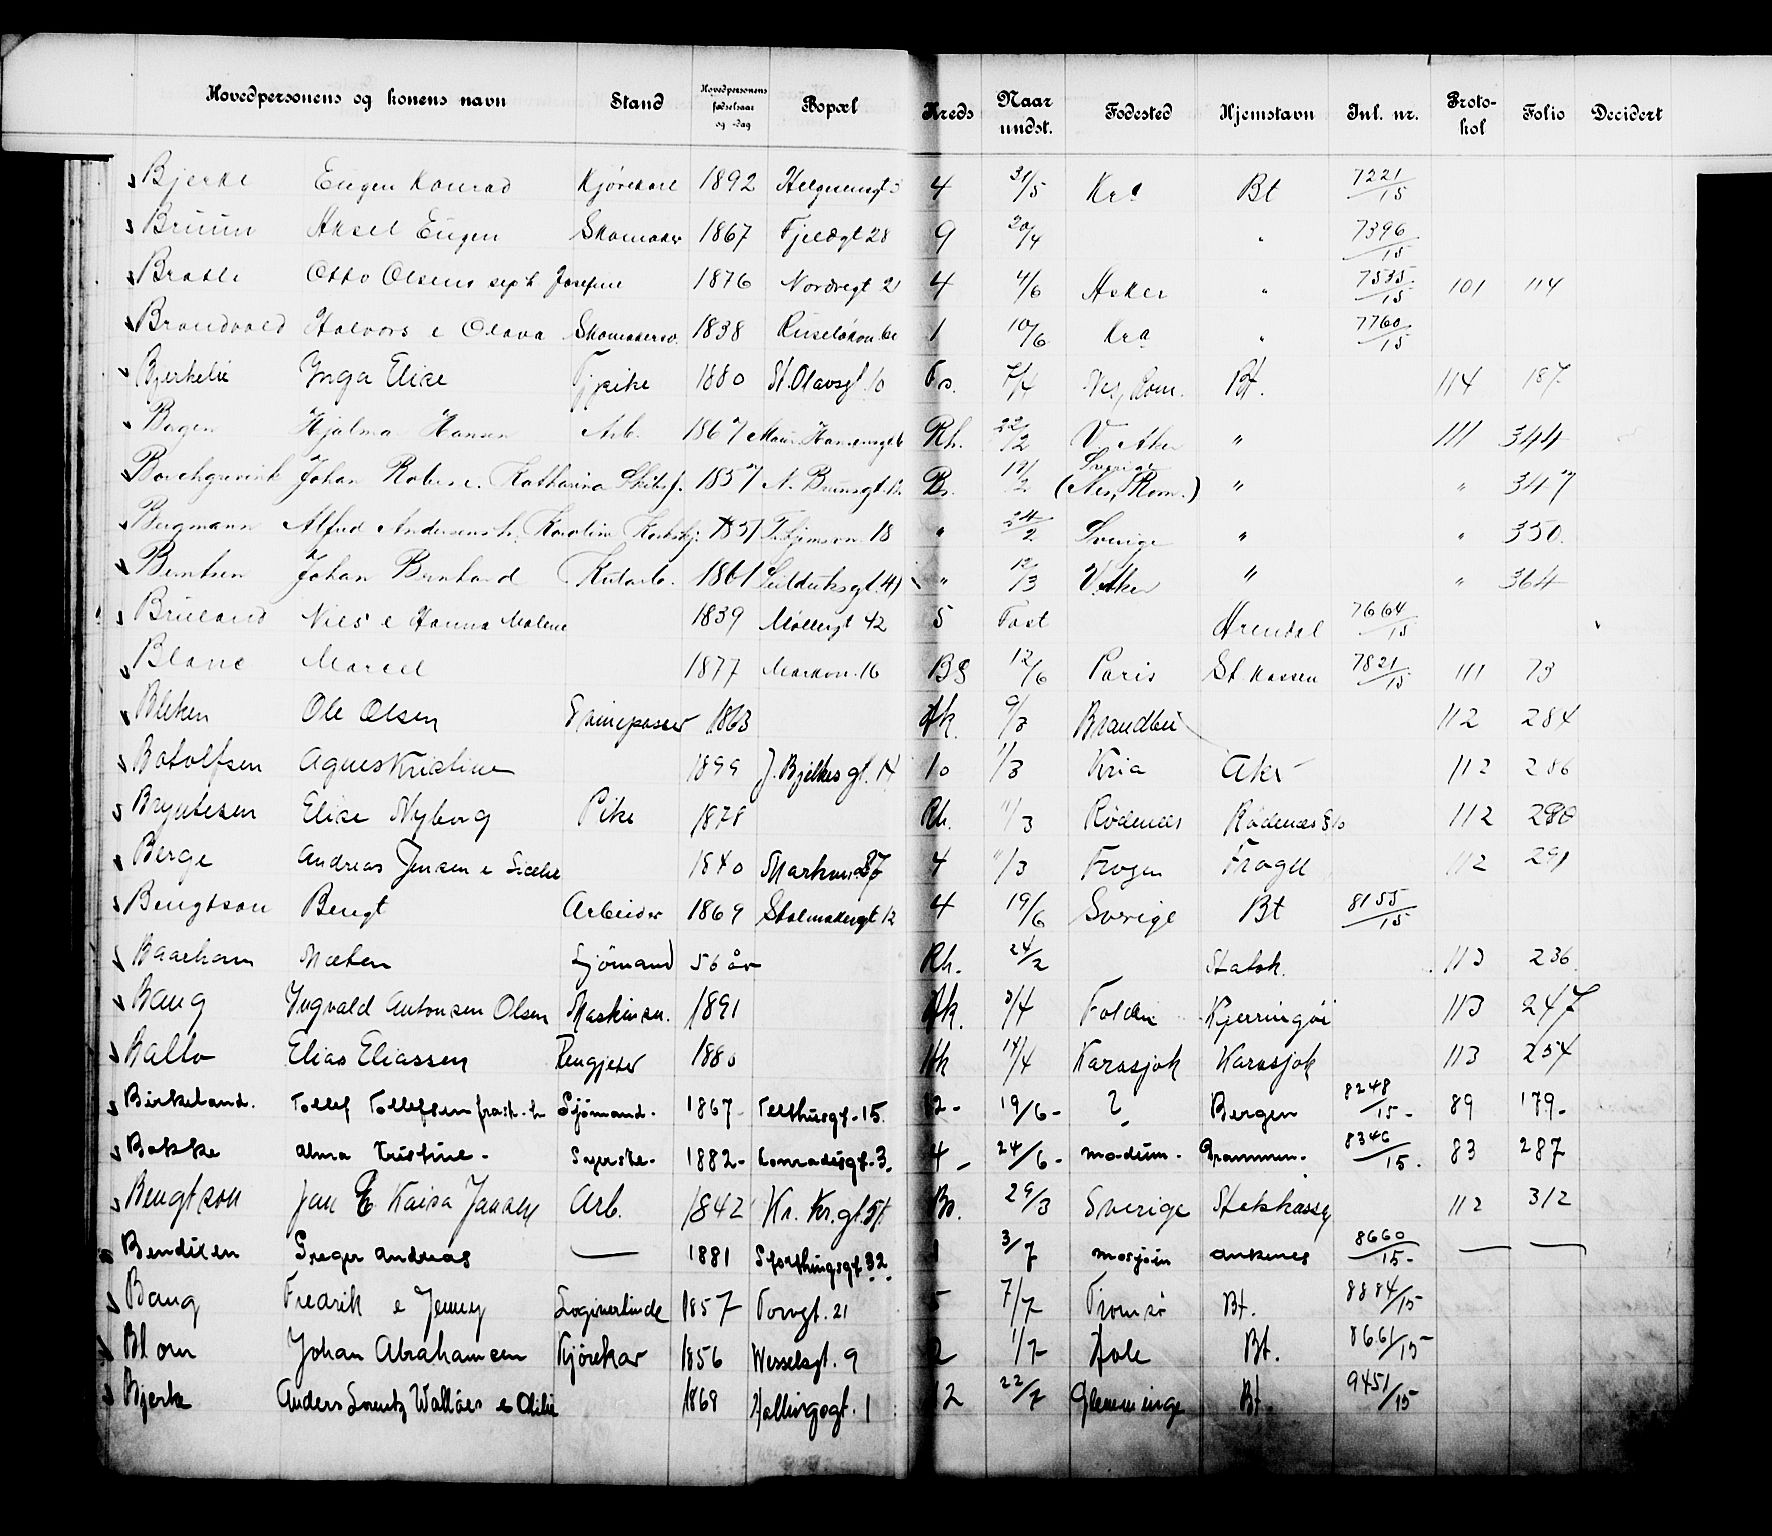 Hovedpersonens og konens navn Stand Hovedpersonens fødselsaar og -dag Bopæl Kreds Naar undst. Fødested Hjemstavn Inl. nr. Proto-kol Folio Decidert
Bjerke Eugen Konrad Kjørekarl 1892 4 31/5 Kra Bt 7221/15
Bruun Aksel Eugen Skomaker 1867 Fjeldgt 28 9 20/4 " 7396/15
Bratli Otto Olsens sep h Josefine 1876 Nordregt 21 4 4/6 Asker " 7535/15 101 114
Brandvold Halvors e Olava 1838 1 10/6 Kra " 7760/15
Bjerkelie Inga Elise Tjpike 1880 St. Olavsgt. 10 Bt. 114 187
Bogen Hjalmar Hansen Arb. 1867 Rh. 22/2 V. Aker " 111 344
Borchgrevink Johan Robert Katharina 1857 Sverige (Nes, Rom.) " " 347
Bergmann Alfred Andersens h. Karoline 18 " 24/2 Sverige " " 350.
Berntsen Johan Bernhard 1861 " 12/3 V. Aker " " 364
Bruland Nils e Hanna Malene 1839 Møllergt 42 5 Fast Arendal 7664/15
Blanc Marcel 1877 Markvn. 16 BS 12/6 Paris St. kassen 7821/15 111 73
Bleken Ole Olsen 1863 Ak. 9/3 Brandbu 112 284
Botolfsen Agnes Kristine 1899 J. Bjelkesgt. 14 10 1/3 Kria Aker 112 286
Bryntesen Elise Nyborg Pike 1878 Rh. 11/3 Rødenæs Rødenæs 112 280
Berge Andreas Jensen e 1840 Markvn 37 4 11/3 Frogn Frogn 112 291
Bengtson Bengt Arbeider 1869 Stolmakergt 12 4 19/6 Sverige Bt 8155/15
Baarham Morten Sjömand 56 år Rh. 24/2 Statsk. 113 236.
Baug Ingvald Antonsen Olsen 1891 Ak. 3/4 Folden Kjerringøi 113 247
Ballo Elias Eliassen Rengjører 1880 Ak 14/4 Karasjok Karasjok 113 254
Birkeland. Tollef Tollefsen frask. h Sjömand. 1867- Telthusgt. 15. 12- 19/6- ? Bergen 8248/15- 89 179-
Bakke Alma Kristine- Syerske- 1882- Conradisgt. 3. 4- 24/6- Modum- Drammen- 8346/15. 83 287
Bengtson Jan E Kaisa Jansen Arb. 1842 Kr. Kr. gt. 51 Bs. 29/3 Sverige Statskasse 112 312
Bendixen Greger Andreas — 1881 Storthingsgt. 32. 3/7 Mosjøen Ankenes 8660/15- — —
Bang Fredrik e Jenny 1857 Torvgt. 21 5 7/7 Tromsø Bt. 8884/15
Blom Johan Abrahamsen Kjørekar 1856 Wesselsgt. 9 2 1/7 Hole Bt. 8661/15
Bjerk Anders Lorentz Wallöes e Otilie 1868 Hallingsgt. 1 12 22/7 Glemminge Bt. 9451/15